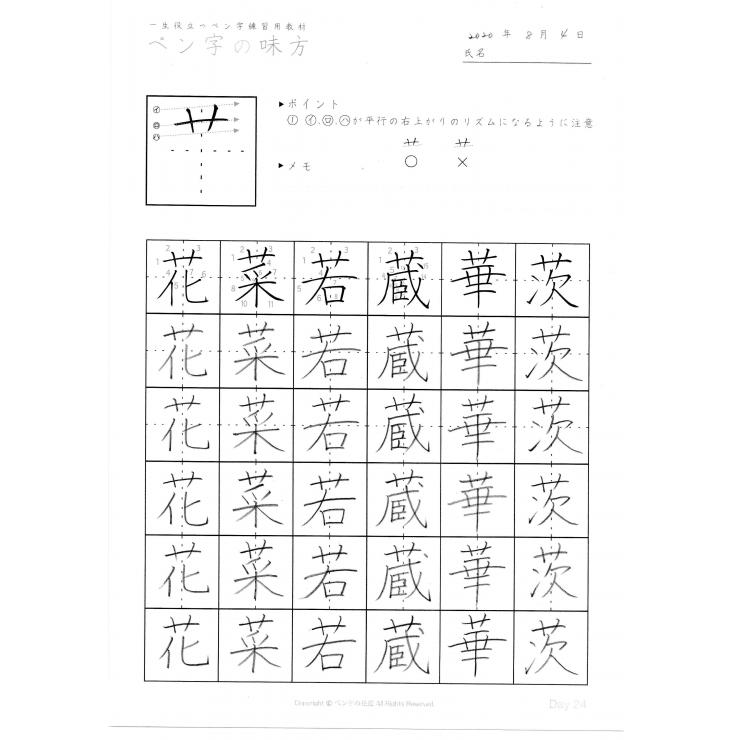 一生役立つペン字練習用教材
ペン字の味方
2020年 8月 4日
氏名
㋑
㋺
㋩
▶ポイント
① ㋑、㋺、㋩が平行の右上がりのリズムになるように注意
艹 艹
○ ×
▶メモ
艹
花 菜 若 蔵 華 茨
花 菜 若 蔵 華 茨
花 菜 若 蔵 華 茨
花 菜 若 蔵 華 茨
花 菜 若 蔵 華 茨
花 菜 若 蔵 華 茨
Copyright © ペン字の味方 All Rights Reserved.
Day 24